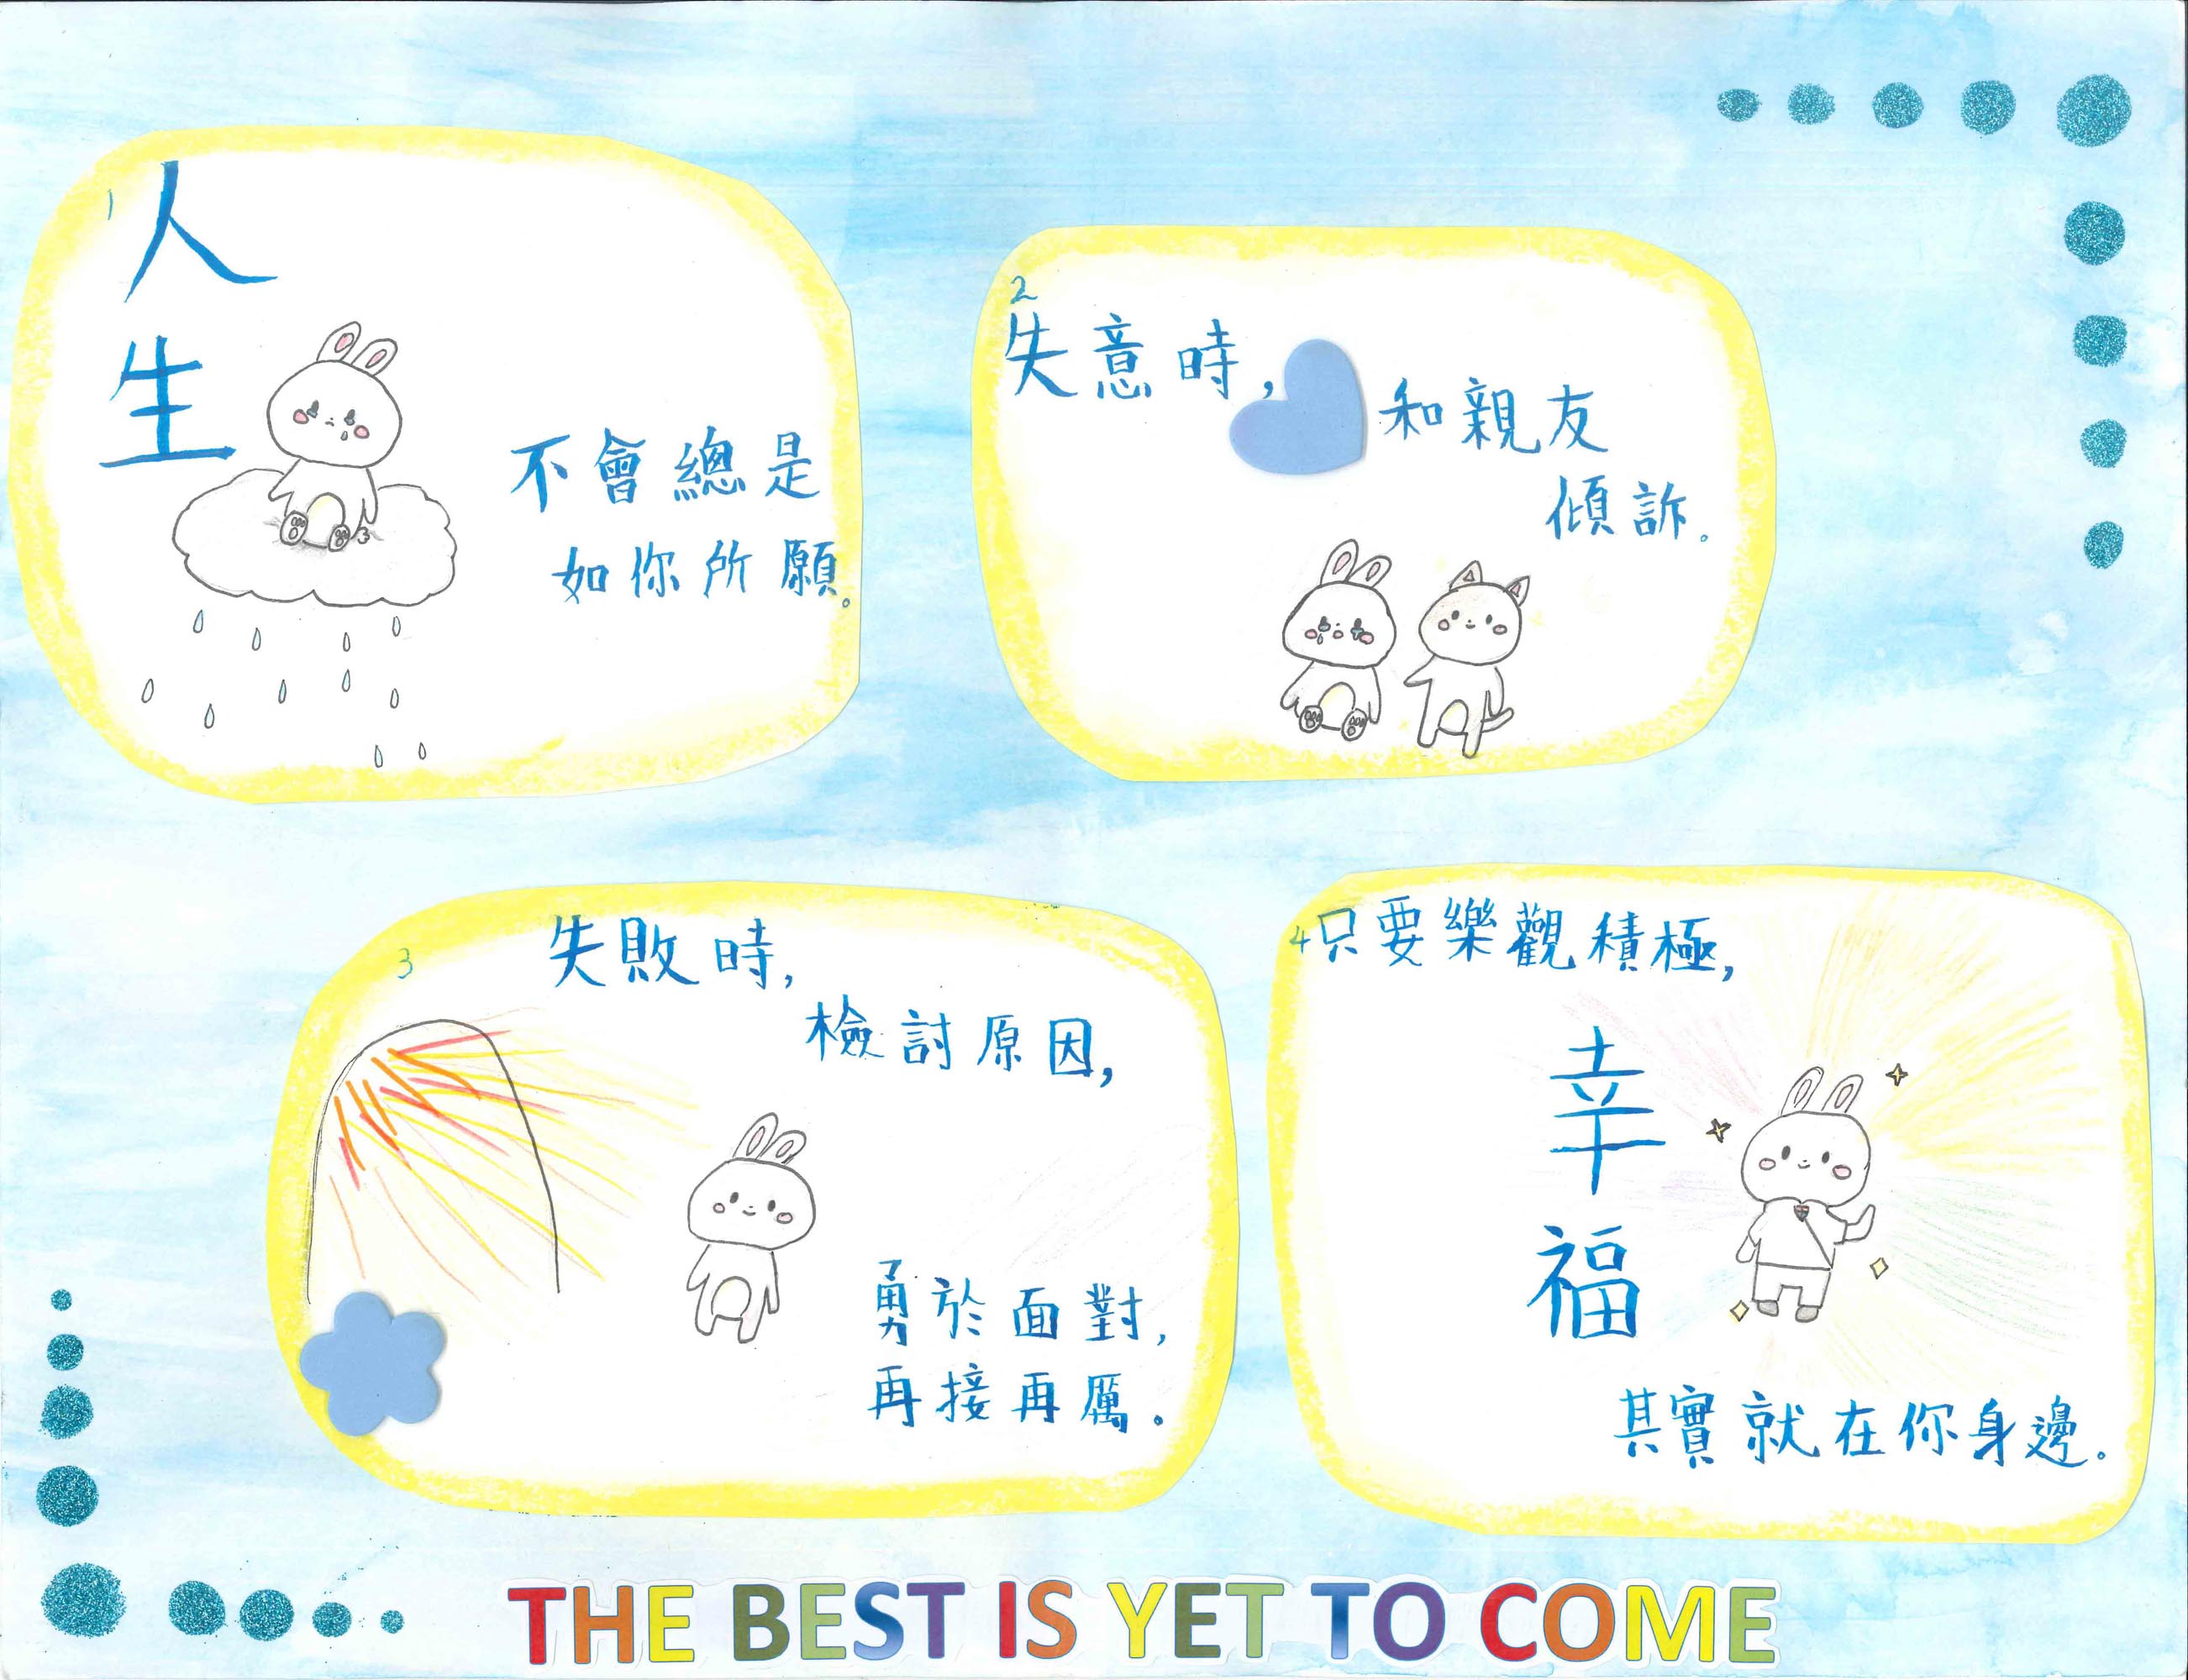 1
人生
不會總是
如你所願。
2
失意時,
和親友
傾訴。
3
失敗時,
檢討原因,
勇於面對,
再接再厲。
4只要樂觀積極,
幸福
其實就在你身邊。
THE BEST IS YET TO COME